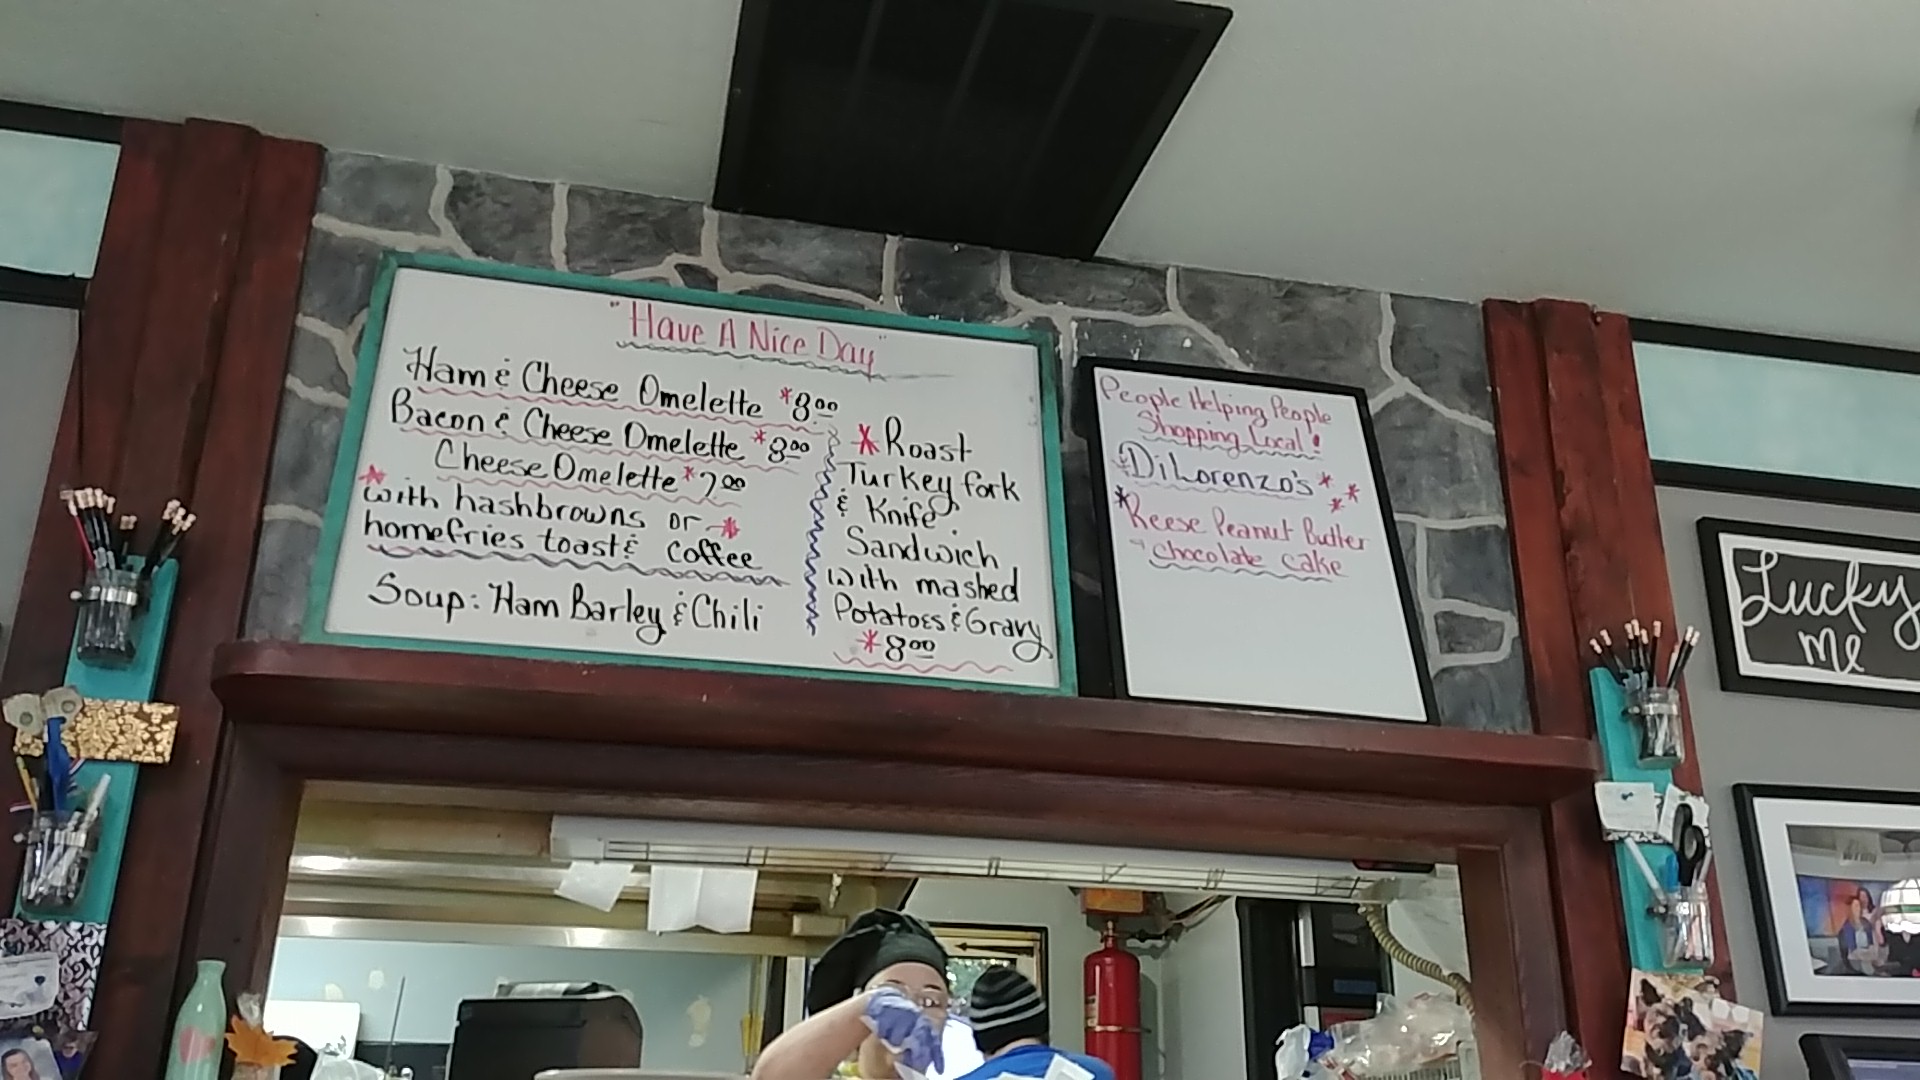 "Have A Nice Day"
Ham & Cheese Omelette *8.00
Bacon & Cheese Omelette *8.00
Cheese Omelette *7.00
*with hashbrowns or *
homefries toast & coffee
Soup: Ham Barley & Chili
*Roast
Turkey fork
& Knife
Sandwich
with mashed
Potatoes & Gravy
*8.00
People Helping People
Shopping Local!
*DiLorenzo's * *
*Reese Peanut Butter *
chocolate cake
Lucky
Me